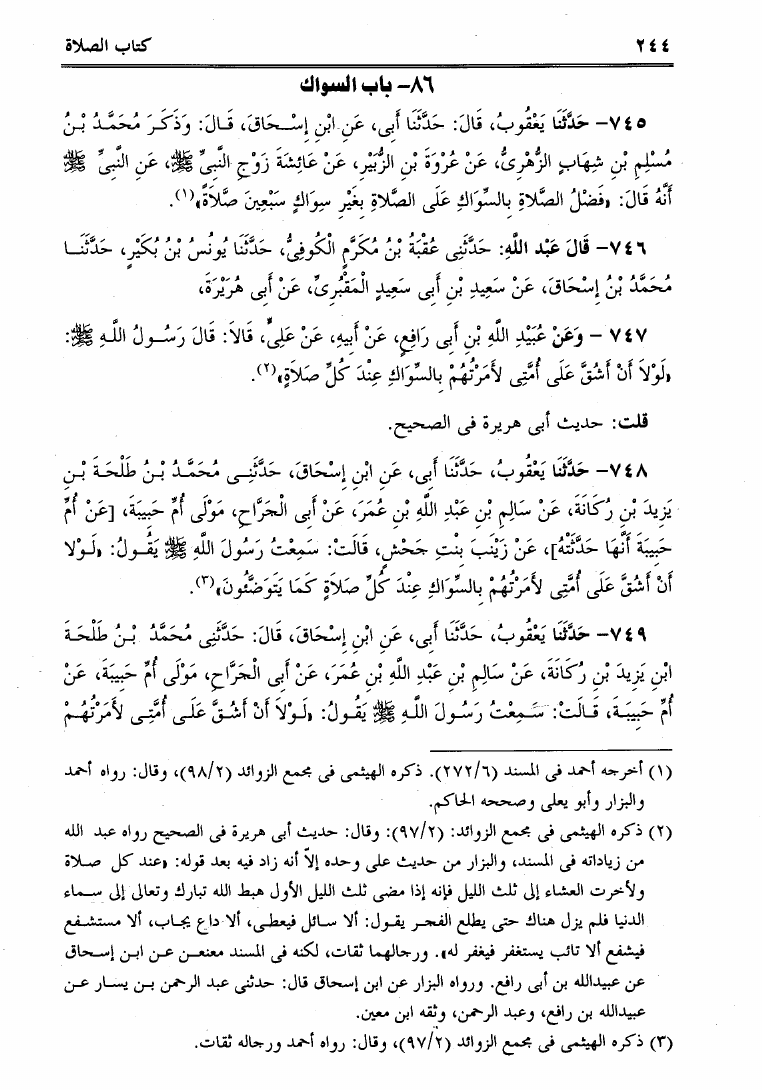 ٢٤٤
كتاب الصلاة
٨٦- باب السواك
٧٤٥- حَدَّثَنَا يَعْقُوبُ، قَالَ: حَدَّثَنَا أَبِى، عَنِ ابْنِ إِسْحَاقَ، قَالَ: وَذَكَرَ مُحَمَّدُ بْنُ
مُسْلِمِ بْنِ شِهَابٍ الزُّهْرِىُّ، عَنْ عُرْوَةَ بْنِ الزُّبَيْرِ، عَنْ عَائِشَةَ زَوْجِ النَّبِىِّ ﷺ، عَنِ النَّبِىِّ ﷺ
أَنَّهُ قَالَ: «فَضْلُ الصَّلاَةِ بِالسِّوَاكِ عَلَى الصَّلاَةِ بِغَيْرِ سِوَاكٍ سَبْعِينَ صَلاَةً»(١).
٧٤٦- قَالَ عَبْد اللَّهِ: حَدَّثَنِى عُقْبَةُ بْنُ مُكَرَّمٍ الْكُوفِىُّ، حَدَّثَنَا يُونُسُ بْنُ بُكَيْرٍ، حَدَّثَنَا
مُحَمَّدُ بْنُ إِسْحَاقَ، عَنْ سَعِيدِ بْنِ أَبِى سَعِيدٍ الْمَقْبُرِىِّ، عَنْ أَبِى هُرَيْرَةَ،
٧٤٧ - وَعَنْ عُبَيْدِ اللَّهِ بْنِ أَبِى رَافِعٍ، عَنْ أَبِيهِ، عَنْ عَلِىٍّ، قَالاَ: قَالَ رَسُولُ اللَّهِ ﷺ:
«لَوْلاَ أَنْ أَشُقَّ عَلَى أُمَّتِى لأَمَرْتُهُمْ بِالسِّوَاكِ عِنْدَ كُلِّ صَلاَةٍ»(٢).
قلت: حديث أبى هريرة فى الصحيح.
٧٤٨- حَدَّثَنَا يَعْقُوبُ، حَدَّثَنَا أَبِى، عَنِ ابْنِ إِسْحَاقَ، حَدَّثَنِى مُحَمَّدُ بْنُ طَلْحَةَ بْنِ
يَزِيدَ بْنِ رُكَانَةَ، عَنْ سَالِمِ بْنِ عَبْدِ اللَّهِ بْنِ عُمَرَ، عَنْ أَبِى الْجَرَّاحِ، مَوْلَى أُمِّ حَبِيبَةَ، [عَنْ أُمِّ
حَبِيبَةَ أَنَّهَا حَدَّثَتْهُ]، عَنْ زَيْنَبَ بِنْتِ جَحْشٍ، قَالَتْ: سَمِعْتُ رَسُولَ اللَّهِ ﷺ يَقُولُ: «لَوْلا
أَنْ أَشُقَّ عَلَى أُمَّتِى لأَمَرْتُهُمْ بِالسِّوَاكِ عِنْدَ كُلِّ صَلاَةٍ كَمَا يَتَوَضَّئُونَ»(٣).
٧٤٩- حَدَّثَنَا يَعْقُوبُ، حَدَّثَنَا أَبِى، عَنِ ابْنِ إِسْحَاقَ، قَالَ: حَدَّثَنِى مُحَمَّدُ بْنُ طَلْحَةَ
ابْنِ يَزِيدَ بْنِ رُكَانَةَ، عَنْ سَالِمِ بْنِ عَبْدِ اللَّهِ بْنِ عُمَرَ، عَنْ أَبِى الْجَرَّاحِ، مَوْلَى أُمِّ حَبِيبَةَ، عَنْ
أُمِّ حَبِيبَةَ، قَالَتْ: سَمِعْتُ رَسُولَ اللَّهِ ﷺ يَقُولُ: «لَوْلاَ أَنْ أَشُقَّ عَلَى أُمَّتِى لأَمَرْتُهُمْ
(١) أخرجه أحمد فى المسند (٢٧٢/٦). ذكره الهيثمى فى مجمع الزوائد (٩٨/٢)، وقال: رواه أحمد
والبزار وأبو يعلى وصححه الحاكم.
(٢) ذكره الهيثمى فى مجمع الزوائد: (٩٧/٢): وقال: حديث أبى هريرة فى الصحيح رواه عبد الله
من زياداته فى المسند، والبزار من حديث على وحده إلاّ أنه زاد فيه بعد قوله: «عند كل صلاة
ولأخرت العشاء إلى ثلث الليل فإنه إذا مضى ثلث الليل الأول هبط الله تبارك وتعالى إلى سماء
الدنيا فلم يزل هناك حتى يطلع الفجر يقول: ألا سائل فيعطى، ألا داع يجاب، ألا مستشفع
فيشفع ألا تائب يستغفر فيغفر له». ورجالهما ثقات، لكنه فى المسند معنعن عن ابن إسحاق
عن عبيدالله بن أبى رافع. ورواه البزار عن ابن إسحاق قال: حدثنى عبد الرحمن بن يسار عن
عبيدالله بن رافع، وعبد الرحمن، وثقه ابن معين.
(٣) ذكره الهيثمى فى مجمع الزوائد (٩٧/٢)، وقال: رواه أحمد ورجاله ثقات.